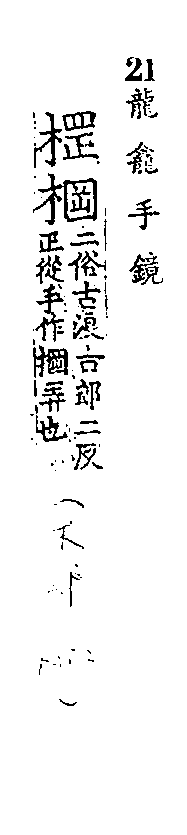 21 龍龕手鏡
棡二俗古浪古郎二反
正從手作掆弄也